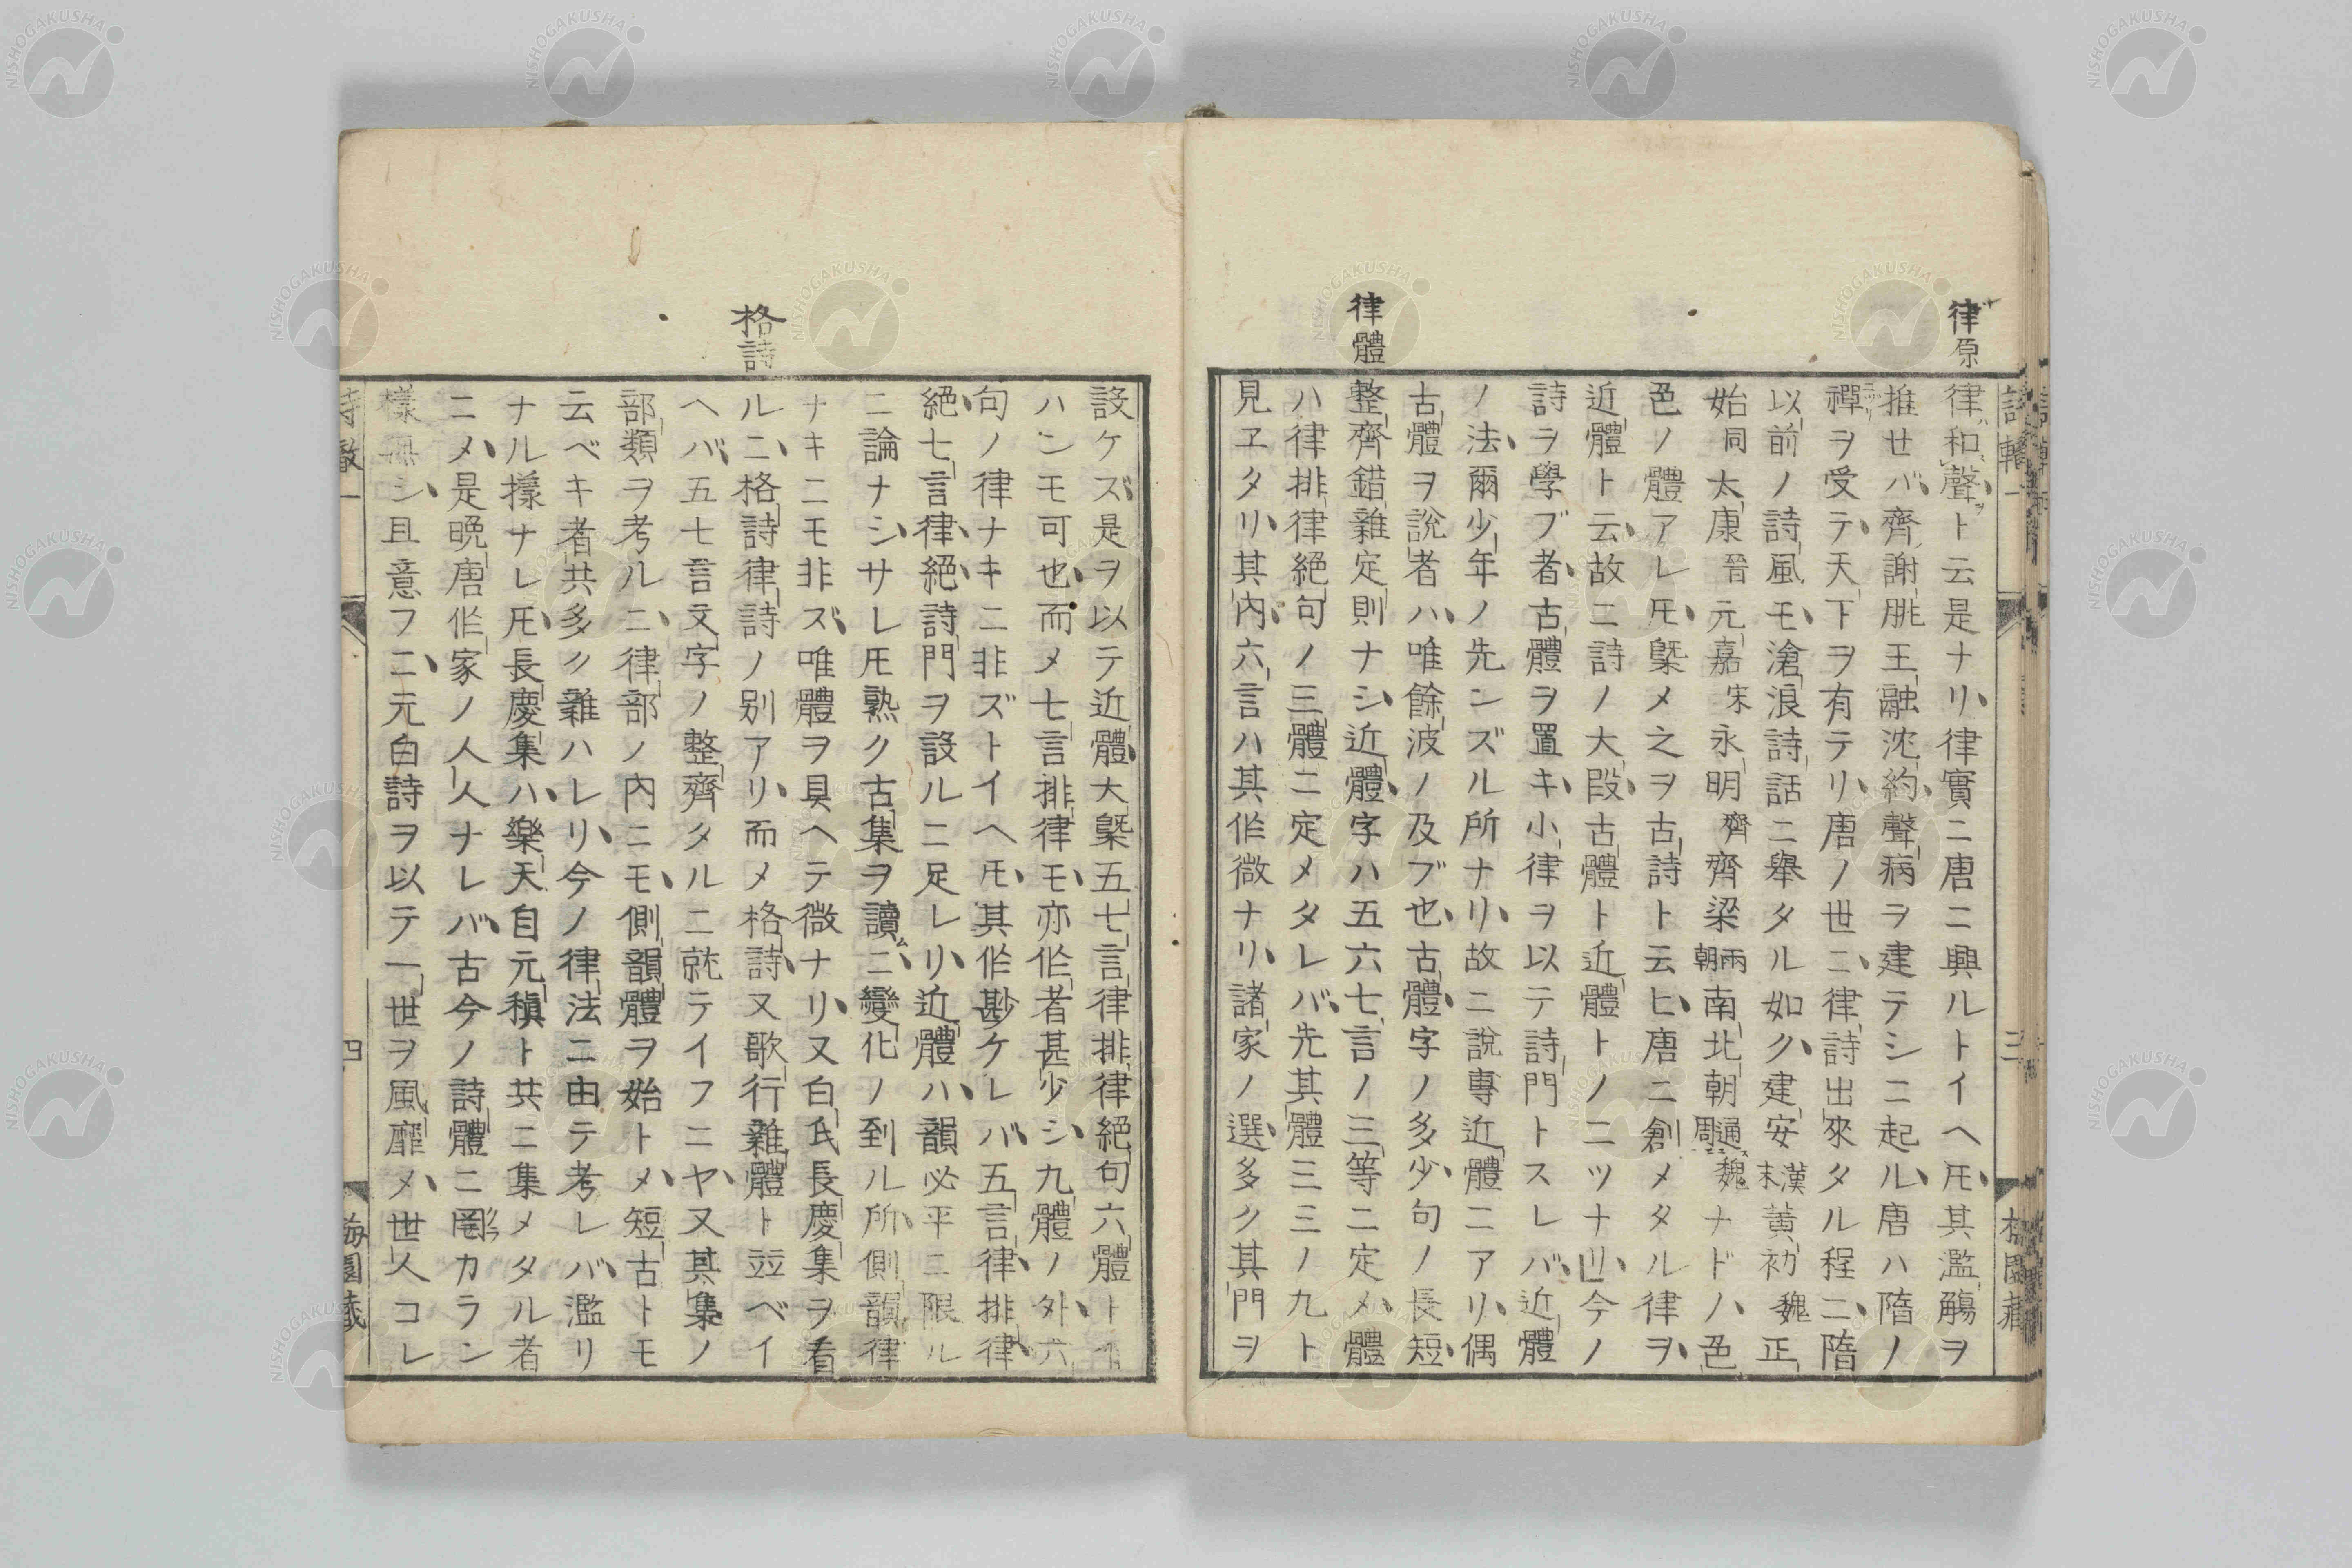 律原
律和聲ト云是ナリ、律實ニ唐ニ興ルトイヘ𪜈、其濫觴ヲ
推セバ、齊謝朓王融沈約、聲病ヲ建テシニ起ル、唐ハ隋ノ
禪ヲ受テ、天下ヲ有テリ、唐ノ世ニ、律詩出來タル程ニ、隋
以前ノ詩風モ、滄浪詩話ニ舉タル如ク、建安漢末黄初魏正
始同太康晉元嘉宋永明齊齊梁兩朝南北朝通魏周ナドハ、色
色ノ體アレ𪜈、槩メ之ヲ古詩ト云ヒ、唐ニ創メタル律ヲ、
近體ト云、故ニ詩ノ大段、古體ト近體トノ二ツナリ、今ノ
詩ヲ學ブ者、古體ヲ置キ、小律ヲ以テ詩門トスレバ、近體
ノ法、爾少年ノ先ンズル所ナリ、故ニ說專近體ニアリ、偶
古體ヲ說者ハ、唯餘波ノ及ブ也、古體、字ノ多少、句ノ長短、
律體
整齊錯雜定則ナシ、近體、字ハ五六七言ノ三等ニ定メ、體
ハ律排律絕句ノ三體ニ定メタレバ、先其體三三ノ九ト
見ヱタリ、其內、六言ハ其作微ナリ、諸家ノ選、多ク其門ヲ
設ケズ、是ヲ以テ近體、大槩五七言律排律絕句六體トイ
ハンモ可也、而メ七言排律モ、亦作者甚少シ、九體ノ外、六
句ノ律ナキニ非ズトイヘ𪜈、其作尠ケレバ、五言律、排律、
絕、七言律、絕、詩門ヲ設ルニ足レリ、近體ハ、韻必平ニ限ル
ニ論ナシ、サレ𪜈熟ク古集ヲ讀ニ、變化ノ到ル所、側韻律
ナキニモ非ズ、唯體ヲ具ヘテ微ナリ、又白氏長慶集ヲ看
格詩
ルニ、格詩律詩ノ別アリ、而メ格詩、又歌行雜體ト竝ベイ
ヘバ、五七言文字ノ整齊タルニ就テイフニヤ、又其集ノ
部類ヲ考ルニ、律部ノ內ニモ、側韻體ヲ始トメ、短古トモ
云ベキ者、共多ク雜ハレリ、今ノ律法ニ由テ考レバ、濫リ
ナル㨾ナレ𪜈、長慶集ハ、樂天自元稹ト共ニ集メタル者
ニメ、是晩唐作家ノ人人ナレバ、古今ノ詩體ニ罔カラン
樣無シ、且意フニ、元白詩ヲ以テ一世ヲ風靡メ、世人コレ
四